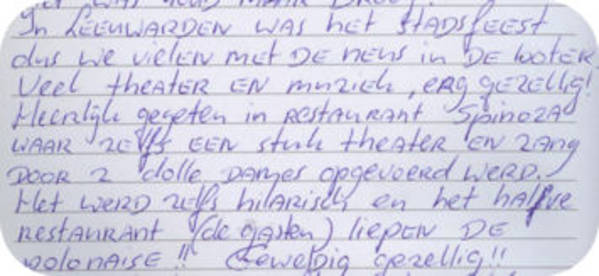 In LEEUWARDEN WAS het STADSfeest
dus we vielen met DE neus in DE boter
Veel theater EN muziek, erg gezellig!
Heerlijk gegeten in RESTAURANT Spinoza
WAAR zelfs EEN stuk theater EN zang
DOOR 2 dolle DAMES opgevoerd WERD.
Het WERD zelfs hilarisch en het halfve
restaurant (de gasten) liepen DE
polonaise!! Geweldig gezellig!!